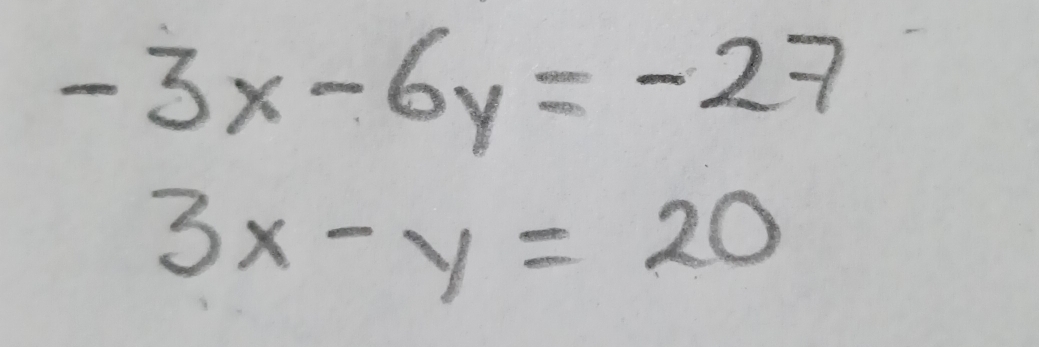 -3x-6y=-27
3x-y=20